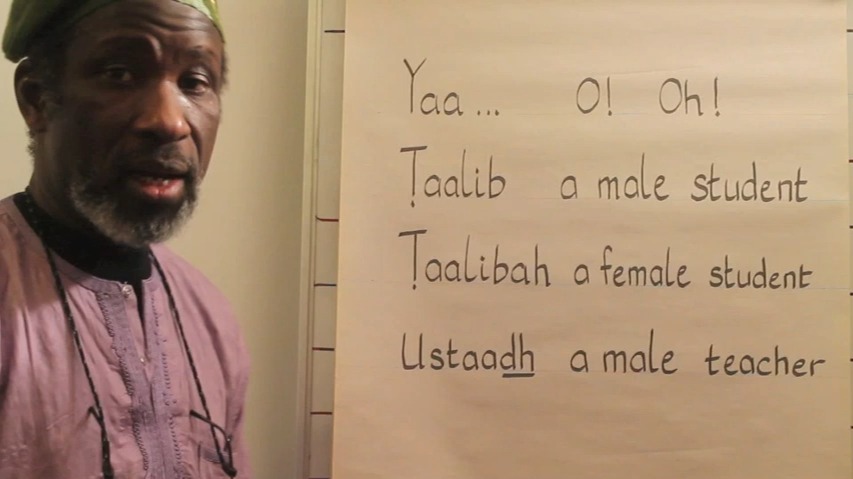 Yaa... O! Oh!
Ṭaalib a male student
Ṭaalibah a female student
Ustaadh a male teacher